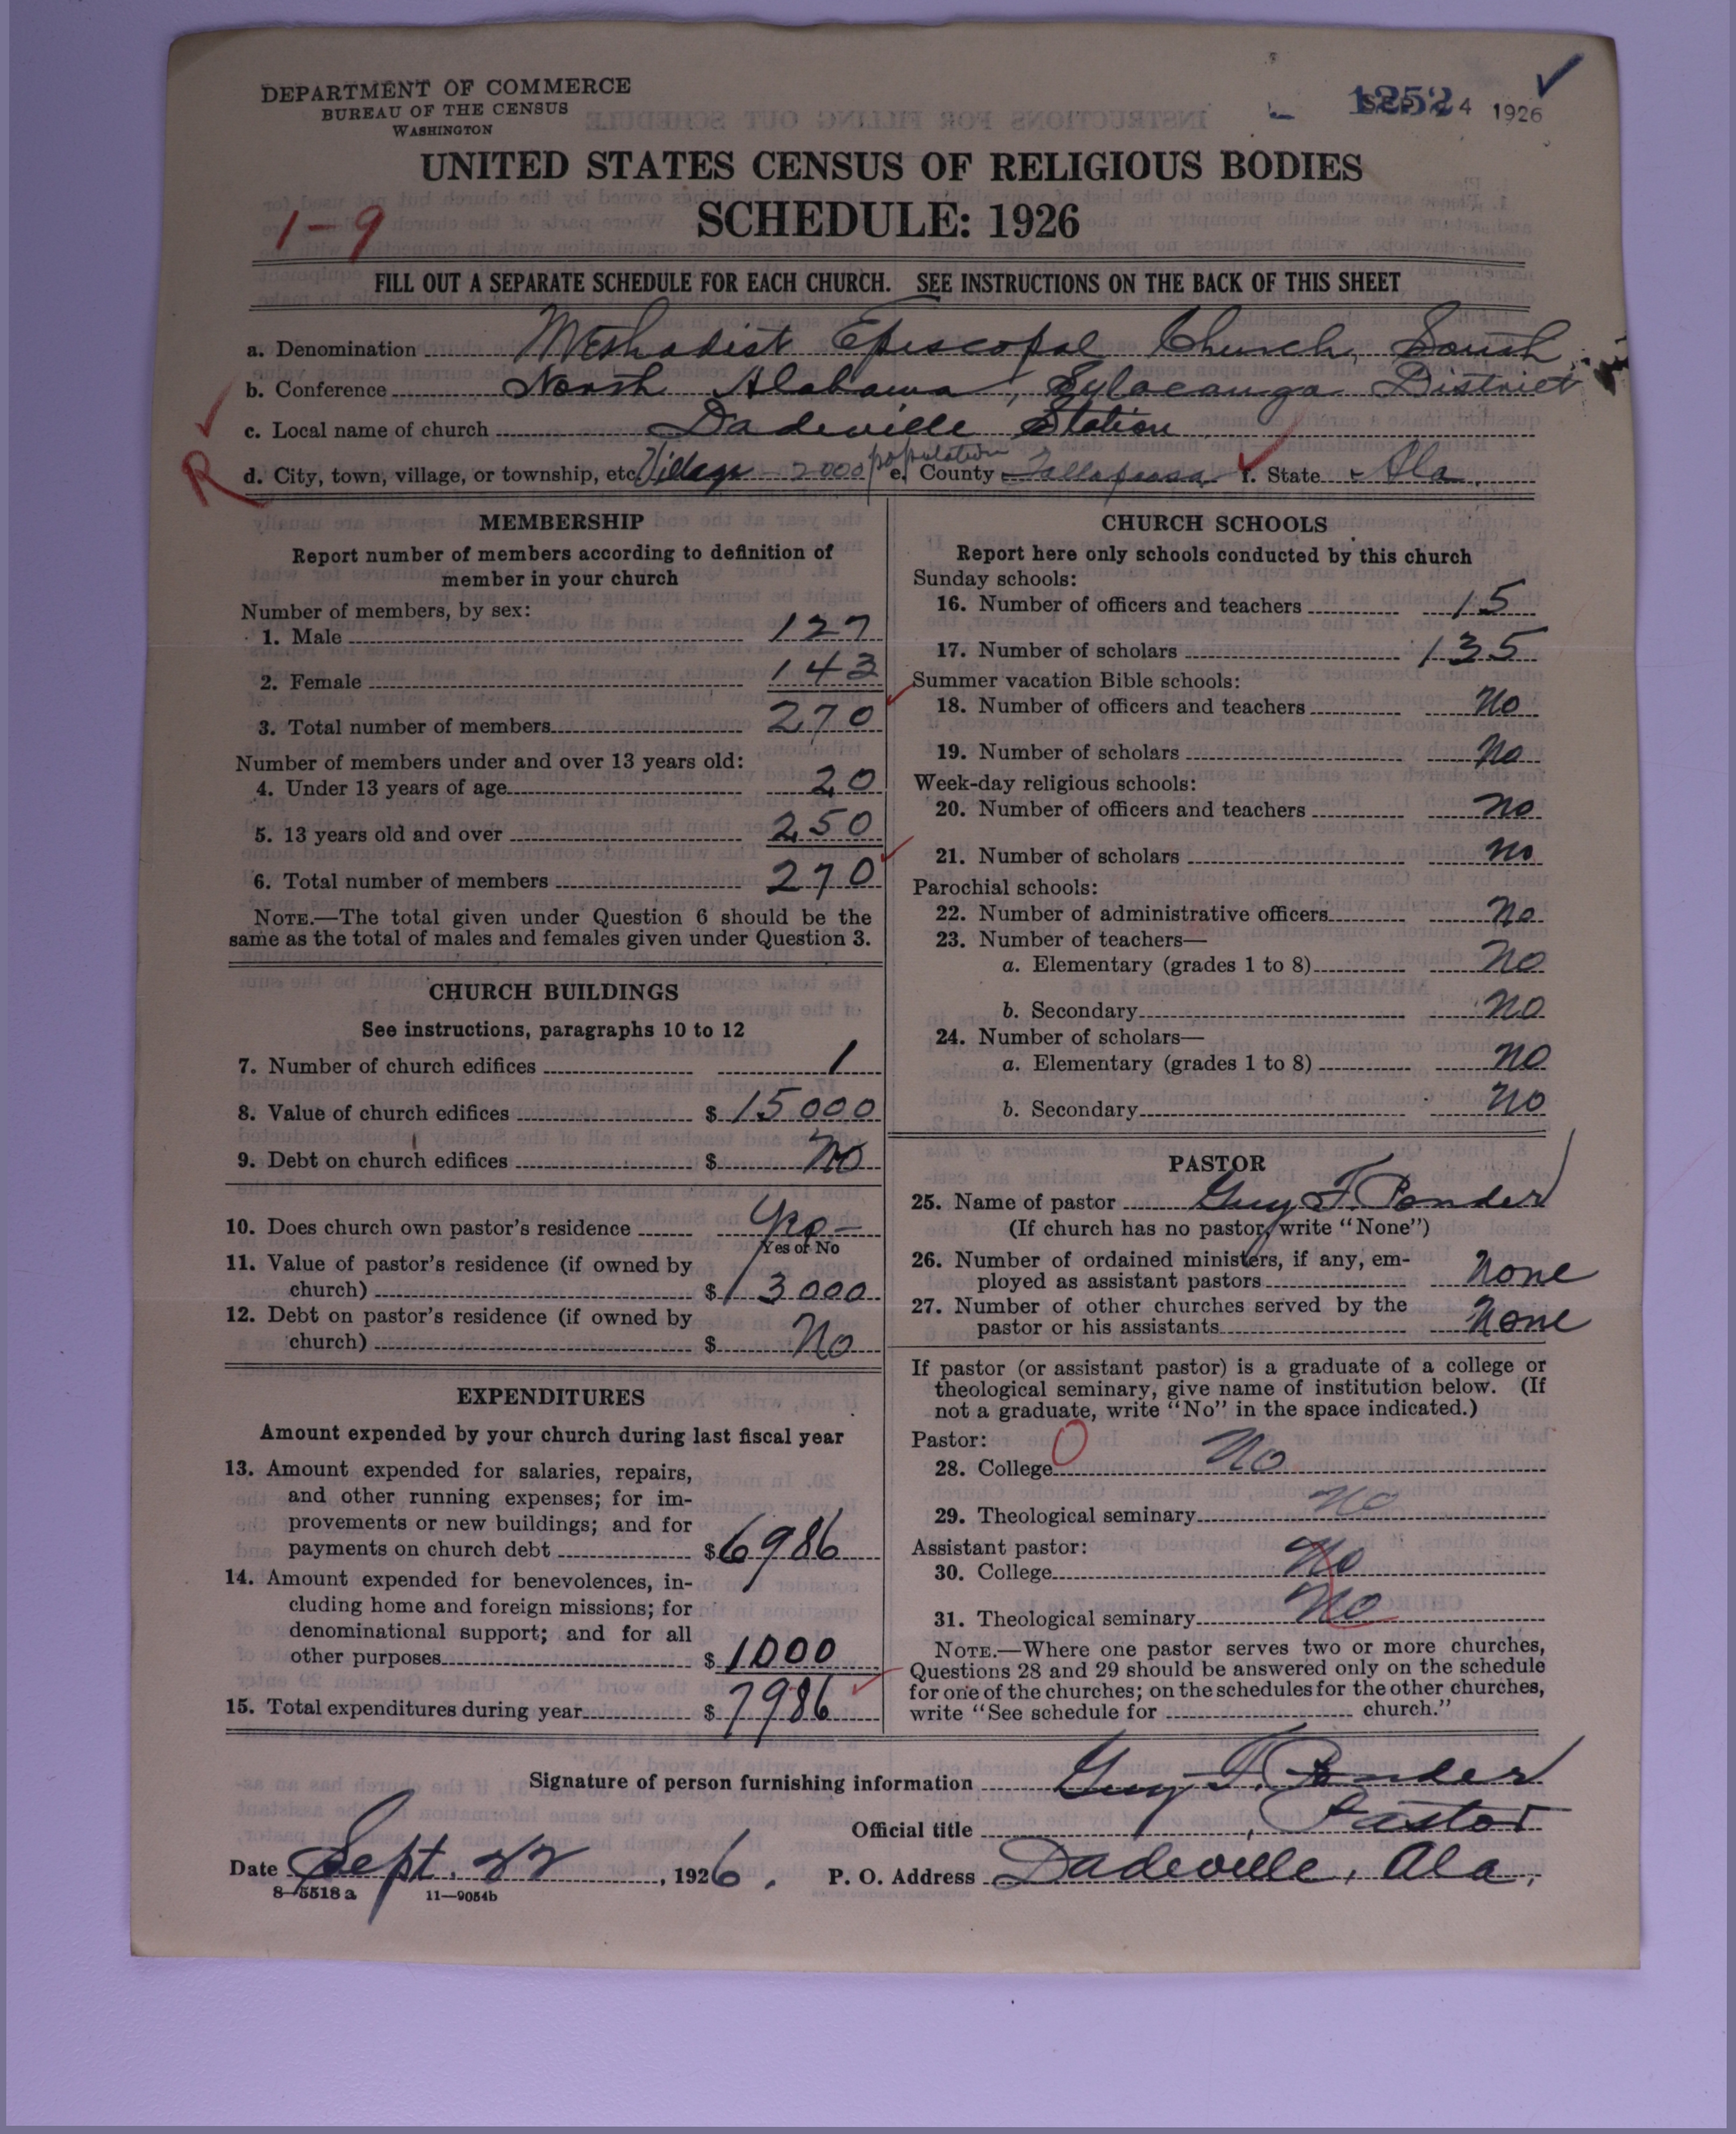 DEPARTMENT OF COMMERCE
BUREAU OF THE CENSUS
WASHINGTON
1252
4 1926
UNITED STATES CENSUS OF RELIGIOUS BODIES
SCHEDULE: 1926
1-9
FILL OUT A SEPARATE SCHEDULE FOR EACH CHURCH. SEE INSTRUCTIONS ON THE BACK OF THIS SHEET
a. Denomination Methodist Episcopal Church, South
b. Conference North Alabama, Sylacauga District
c. Local name of church Dadeville Station
R
d. City, town, village, or township, etc. Village - 2000 population e. County Tallapoosa f. State Ala.
MEMBERSHIP
Report number of members according to definition of
member in your church
Number of members, by sex:
1. Male 127
2. Female 143
3. Total number of members 270
Number of members under and over 13 years old:
4. Under 13 years of age 20
5. 13 years old and over 250
6. Total number of members 270
NOTE.—The total given under Question 6 should be the
same as the total of males and females given under Question 3.
CHURCH BUILDINGS
See instructions, paragraphs 10 to 12
7. Number of church edifices 1
8. Value of church edifices $ 15000
9. Debt on church edifices $ No
10. Does church own pastor's residence
Yes or No
11. Value of pastor's residence (if owned by
church) $ 3000
12. Debt on pastor's residence (if owned by
church) $ No
EXPENDITURES
Amount expended by your church during last fiscal year
13. Amount expended for salaries, repairs,
and other running expenses; for im-
provements or new buildings; and for
payments on church debt $ 6986
14. Amount expended for benevolences, in-
cluding home and foreign missions; for
denominational support; and for all
other purposes $ 1000
15. Total expenditures during year $ 7986
CHURCH SCHOOLS
Report here only schools conducted by this church
Sunday schools:
16. Number of officers and teachers 15
17. Number of scholars 135
Summer vacation Bible schools:
18. Number of officers and teachers No
19. Number of scholars No
Week-day religious schools:
20. Number of officers and teachers no
21. Number of scholars no
Parochial schools:
22. Number of administrative officers no
23. Number of teachers—
a. Elementary (grades 1 to 8) no
b. Secondary no
24. Number of scholars—
a. Elementary (grades 1 to 8) no
b. Secondary no
PASTOR
25. Name of pastor Guy F. Ponder
(If church has no pastor, write "None")
26. Number of ordained ministers, if any, em-
ployed as assistant pastors none
27. Number of other churches served by the
pastor or his assistants none
If pastor (or assistant pastor) is a graduate of a college or
theological seminary, give name of institution below. (If
not a graduate, write "No" in the space indicated.)
Pastor: 0
28. College No
29. Theological seminary no
Assistant pastor:
30. College No
31. Theological seminary No
NOTE.—Where one pastor serves two or more churches,
Questions 28 and 29 should be answered only on the schedule
for one of the churches; on the schedules for the other churches,
write "See schedule for church."
Signature of person furnishing information Guy F. Ponder
Official title Pastor
Date Sept. 22, 1926. P. O. Address Dadeville, Ala,
8-5518a 11-9054b